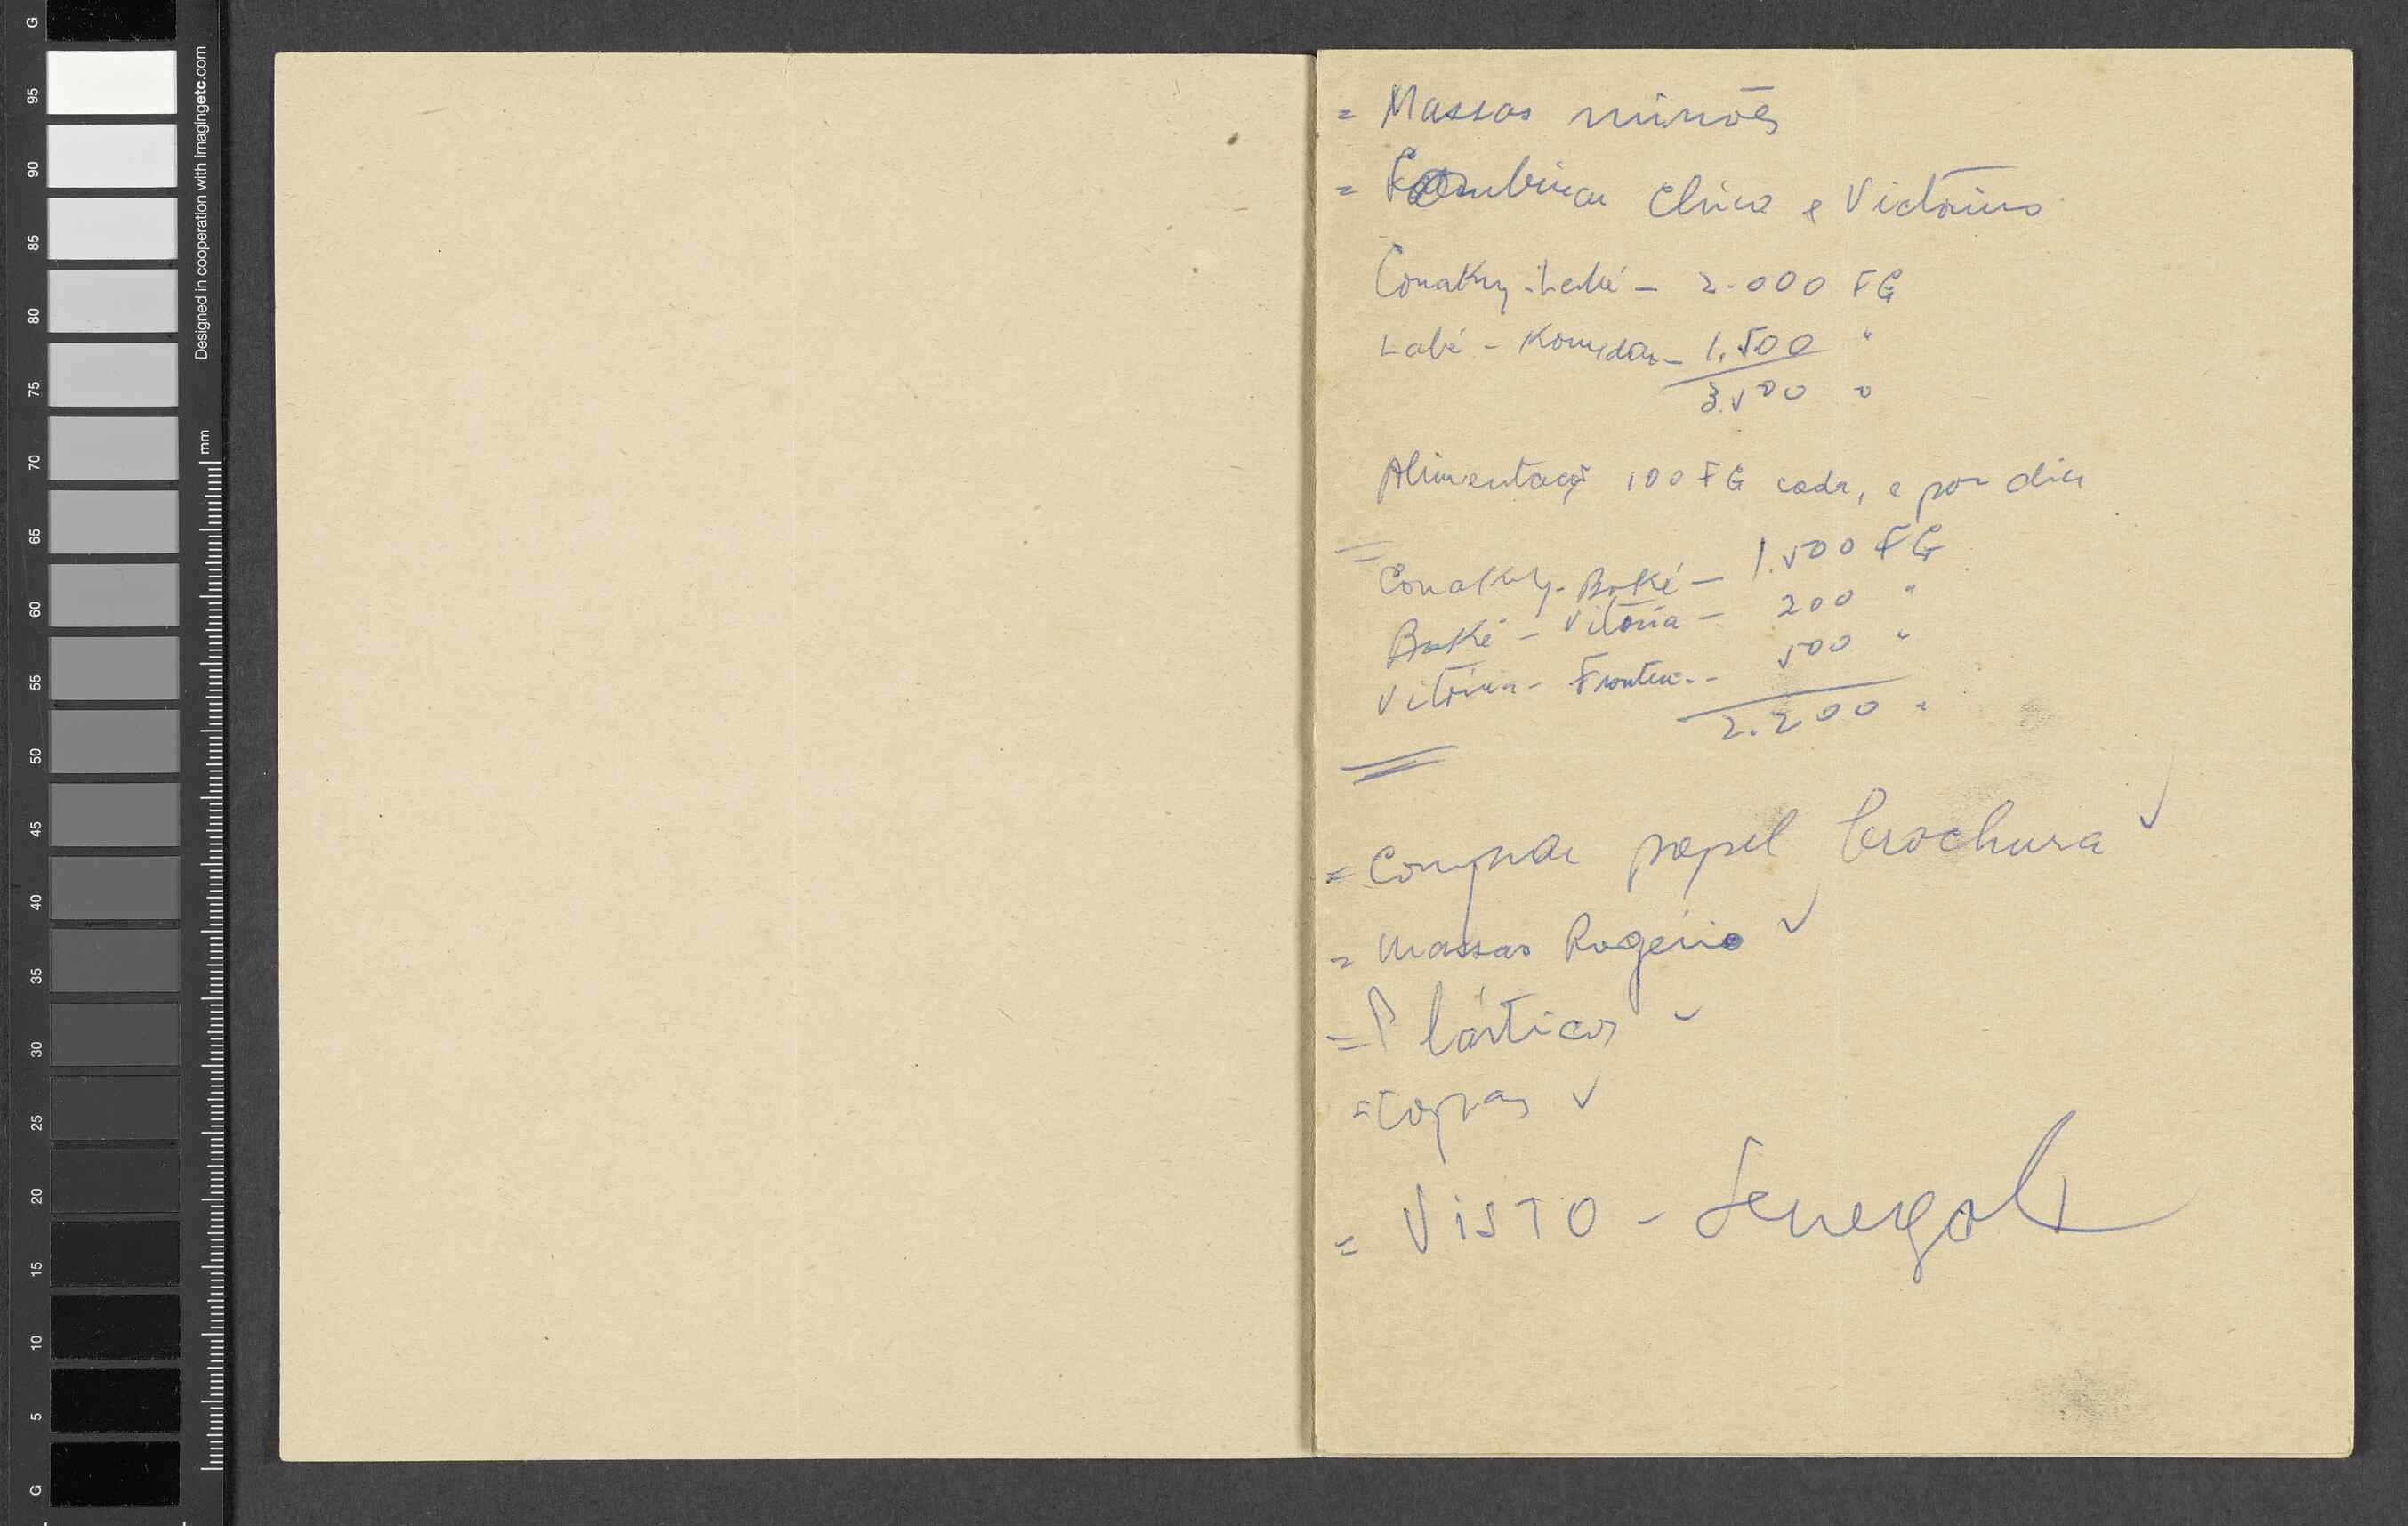 = Massas missões
= Combinar China e Victorino
Conakry-Labé - 2.000 FG
Labé - Koundara - 1.500 "
3.500 "
Alimentação 100 FG cada, e por dia
= Conakry-Boké - 1.500 FG
Boké - Vitória - 200 "
Vitória - Fronteir.. 500 "
2.200 "
= Comprar papel brochura ✓
= Massas Rogério ✓
= Plásticos ✓
= Capas ✓
= VISTO - Senegal
G
95
90
85
80
75
70
65
60
55
50
45
40
35
30
25
20
15
10
5
G
Designed in cooperation with imagingetc.com
mm